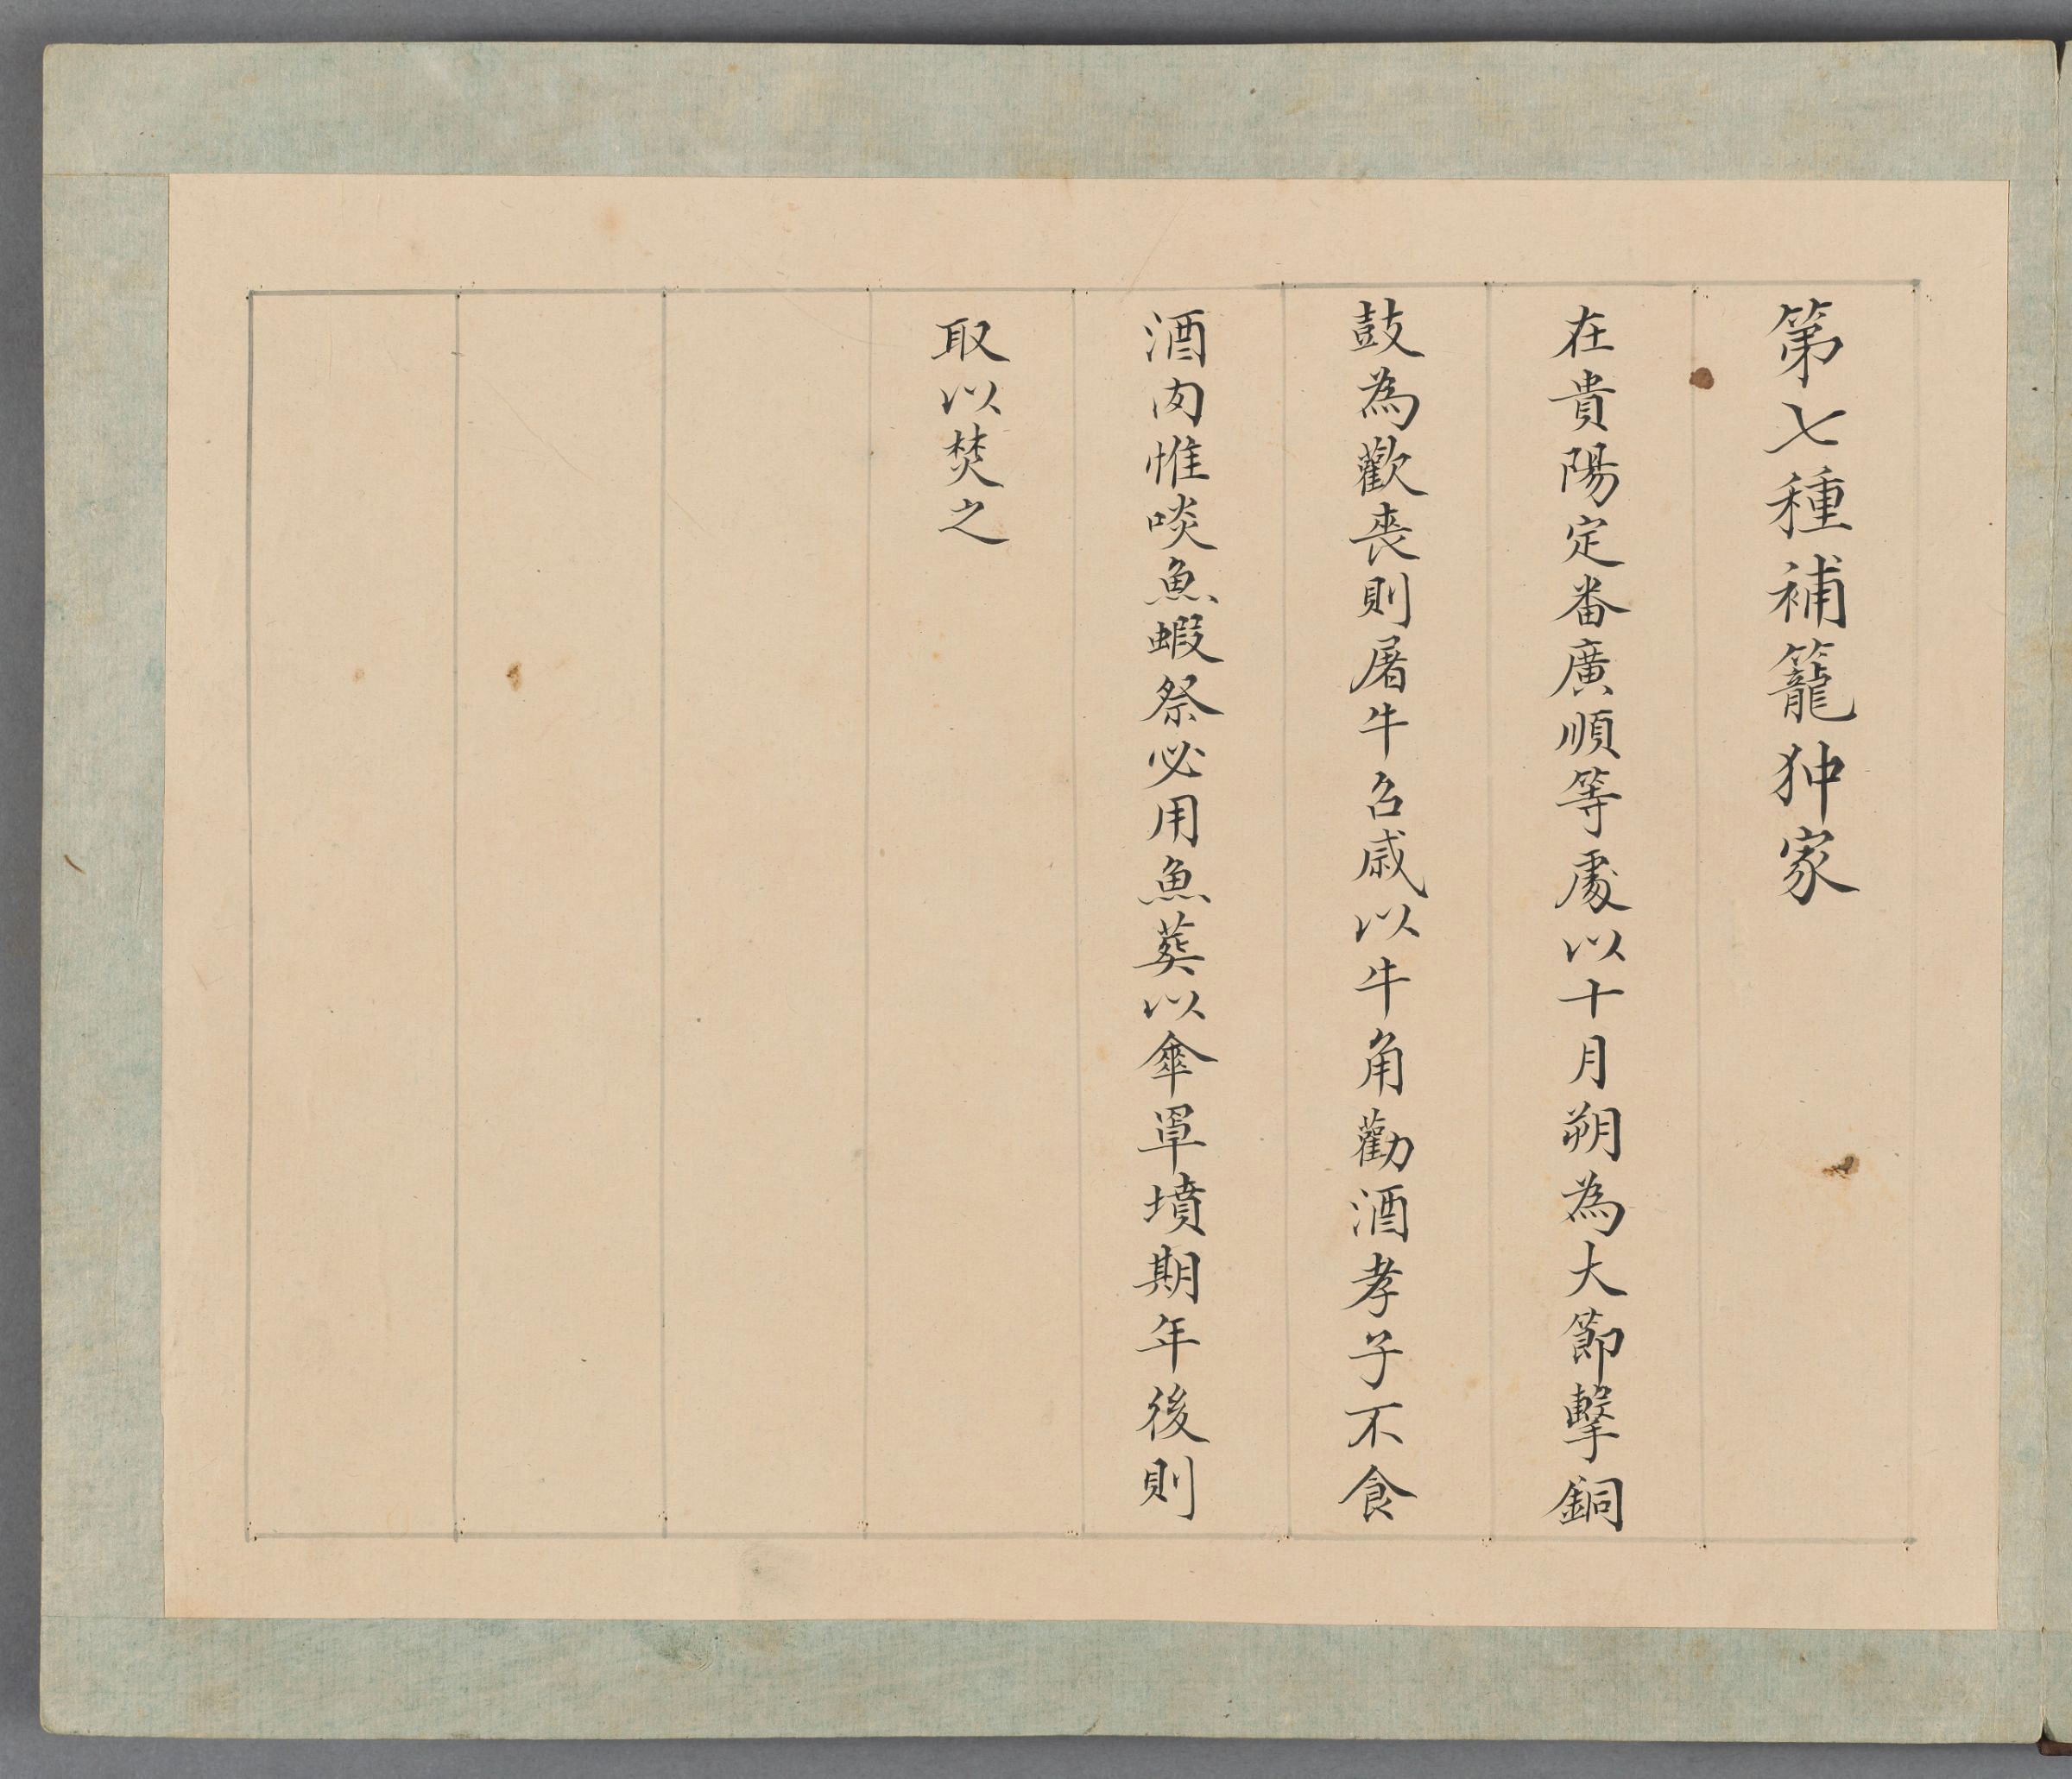 第七種補籠狆家
在貴陽定番廣順等處以十月朔為大節擊銅
鼓為歡喪則屠牛召戚以牛角勸酒孝子不食
酒肉惟啖魚蝦祭必用魚葬以傘罩墳期年後則
取以焚之